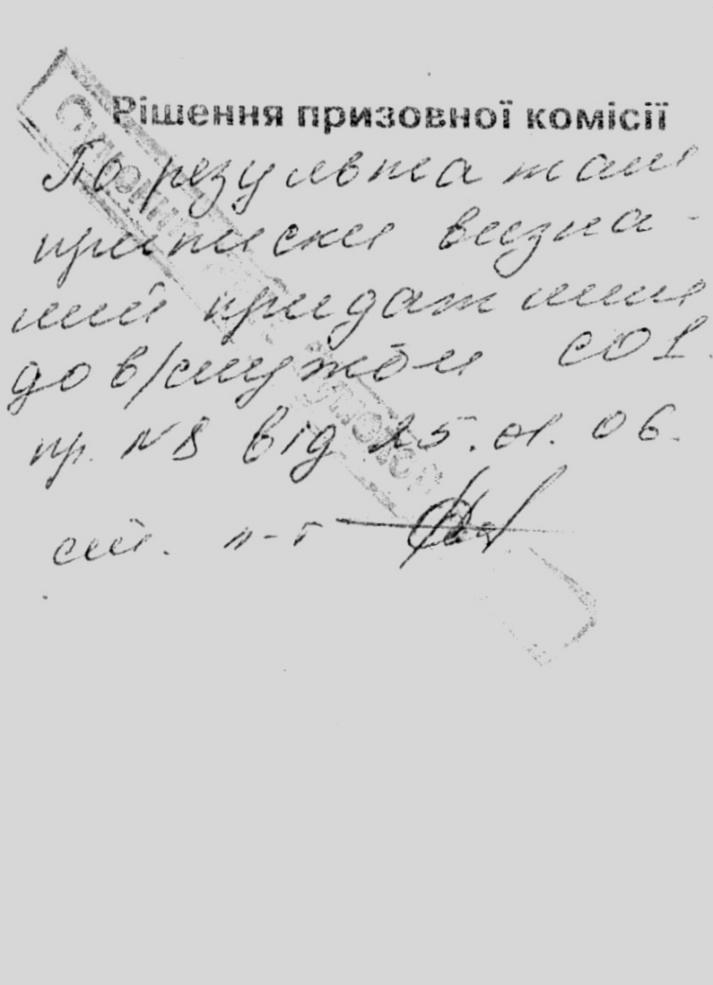 Рішення призовної комісії
По результатам
приписки визна-
ний придатним
до в/служби СО1.
пр. №8 від 25.01.06.